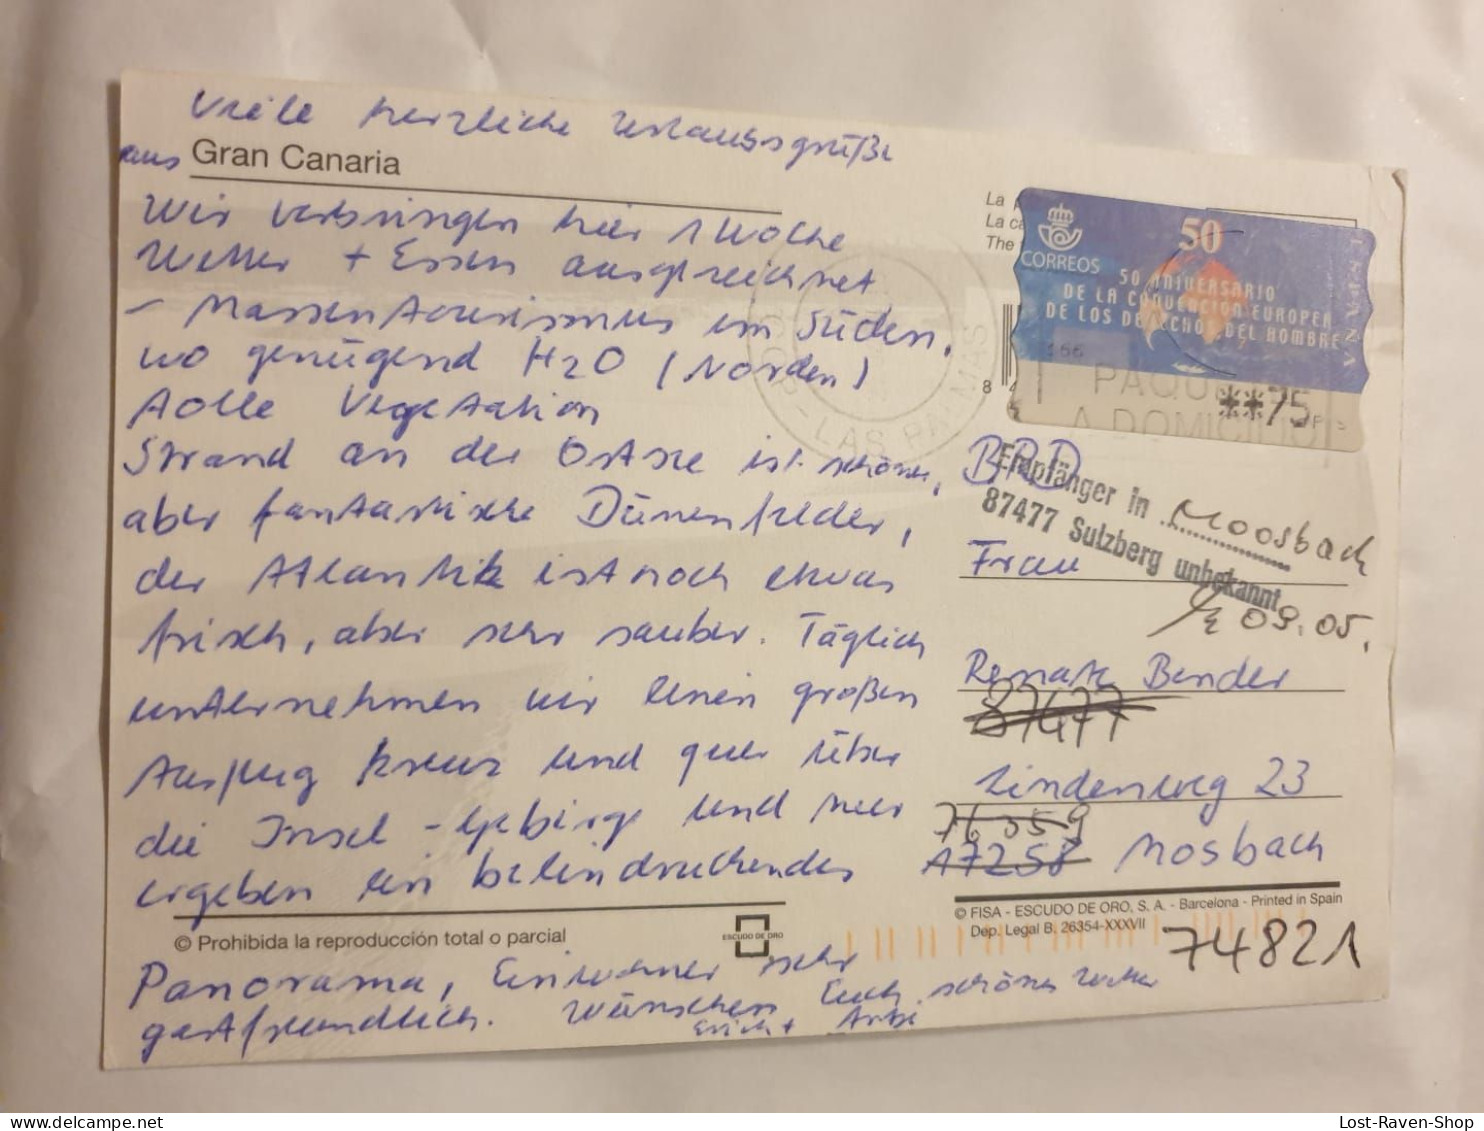 Viele herzliche Urlaubsgrüße
aus Gran Canaria
Wir verbringen hier 1 Woche
Wetter + Essen ausgezeichnet
- Massentourismus im Süden,
wo genügend H2O (Norden)
tolle Vegetation
Strand an der Ostsee ist schöner,
aber fantastische Dünenfelder,
der Atlantik ist noch etwas
frisch, aber sehr sauber. Täglich
unternehmen wir einen großen
Ausflug kreuz und quer über
die Insel - Gebirge und Meer
ergeben ein beeindruckendes
© Prohibida la reproducción total o parcial
ESCUDO DE ORO
Panorama, Einwohner sehr
gastfreundlich. Wünschen Euch schöne
Erich +
La
La ca
The
CORREOS
50
50 ANIVERSARIO
DE LA CONVENCION EUROPEA
DE LOS DERECHOS DEL HOMBRE
**75
PAQU
A DOMICILIO
LAS PALMAS
8 4
BRD
Empfänger in Moosbach
87477 Sulzberg unbekannt
09.05.
Frau
Renate Bender
87477
Lindenweg 23
76359
A7258 Mosbach
© FISA - ESCUDO DE ORO, S. A. - Barcelona - Printed in Spain
Dep. Legal B. 26354-XXXVII
74821
Lost-Raven-Shop